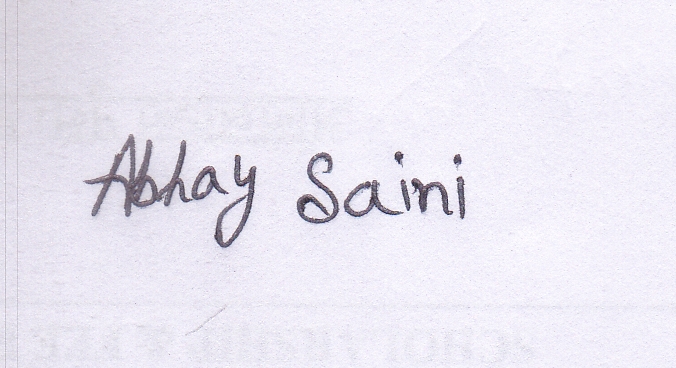 Abhay Saini